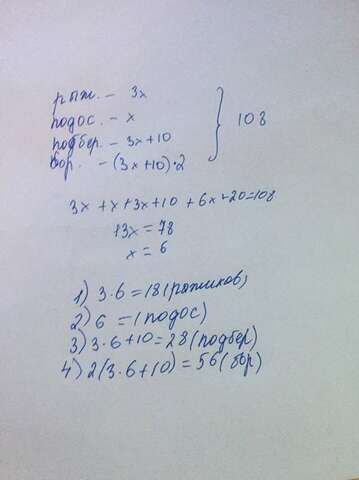 рыж. – 3x
подос. – x
подбер. – 3x+10
бор. – (3x+10)·2
108
3x+x+3x+10+6x+20=108
13x=78
x=6
1) 3·6=18(рыжиков)
2) 6 =(подос)
3) 3·6+10=28(подбер)
4) 2(3·6+10)=56(бор)